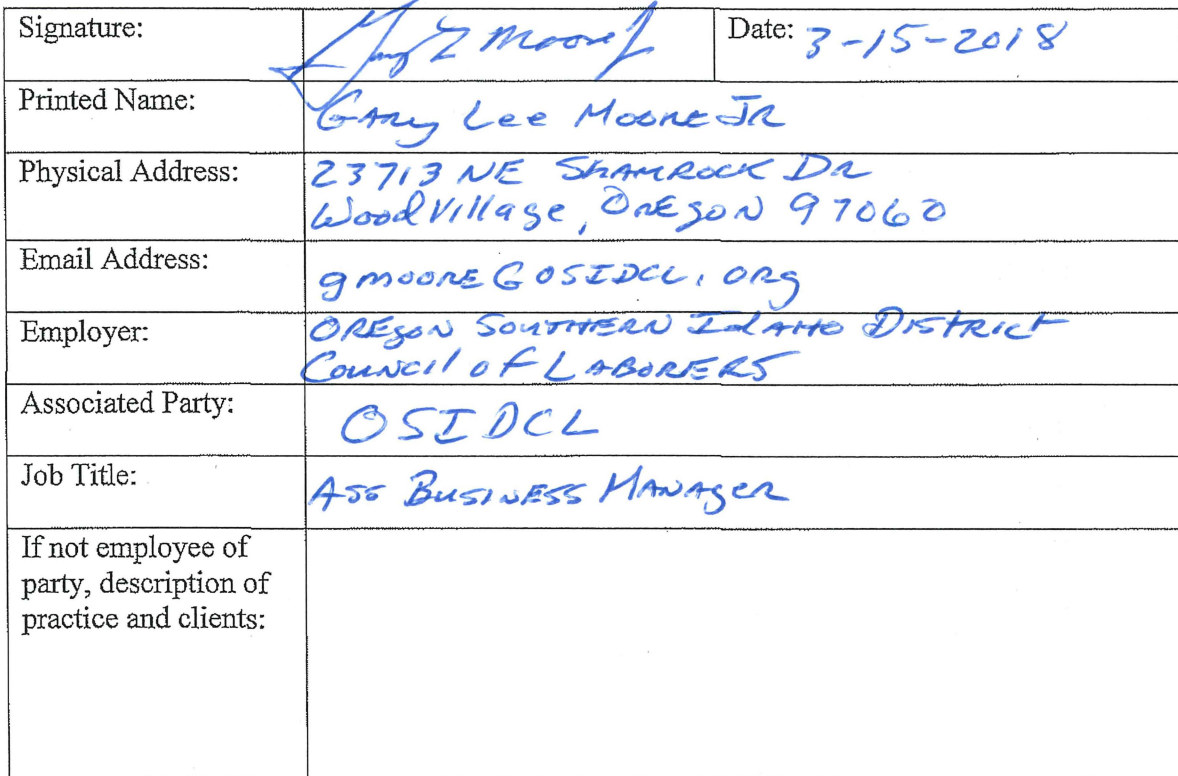 Signature: Gary L Moore Jr Date: 3-15-2018
Printed Name: Gary Lee Moore JR
Physical Address: 23713 NE Shamrock DR
Wood Village, Oregon 97060
Email Address: gmoore@OSIDCL.org
Employer: Oregon Southern Idaho District
Council of Laborers
Associated Party: OSIDCL
Job Title: Ass Business Manager
If not employee of
party, description of
practice and clients: